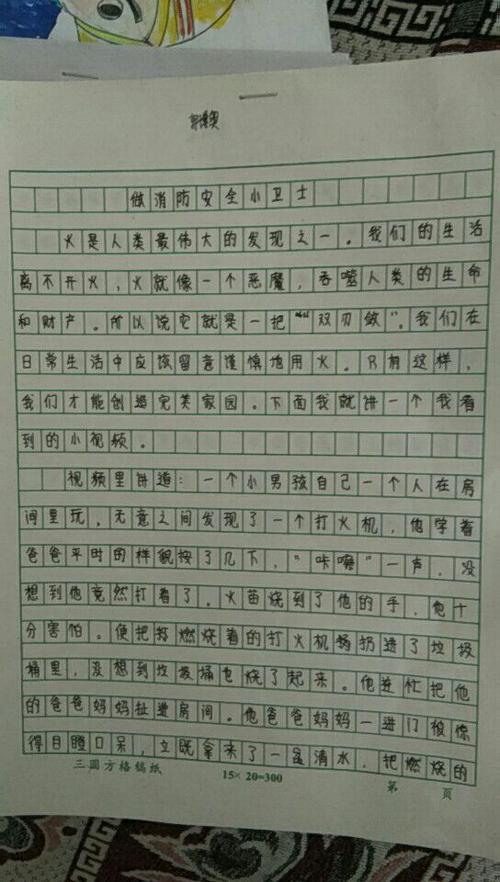 做消防安全小卫士
火是人类最伟大的发现之一。我们的生活
离不开火,火就像一个恶魔,吞噬人类的生命
和财产。所以说它就是一把“双刃剑”。我们在
日常生活中应该留意谨慎地用火。只有这样,
我们才能创造完美家园。下面我就讲一个我看
到的小视频。
视频里讲道:一个小男孩自己一个人在房
间里玩,无意之间发现了一个打火机,他学着
爸爸平时的样貌按了几下,“咔嚓”一声,没
想到他竟然打着了。火苗烧到了他的手,他十
分害怕。便把燃烧着的打火机扔进了垃圾
桶里,没想到垃圾桶也烧了起来。他连忙把他
的爸爸妈妈扯进房间。他爸爸妈妈一进门被惊
得目瞪口呆,立既拿来了一盆清水,把燃烧的
三圆方格稿纸
15×20=300
第 页